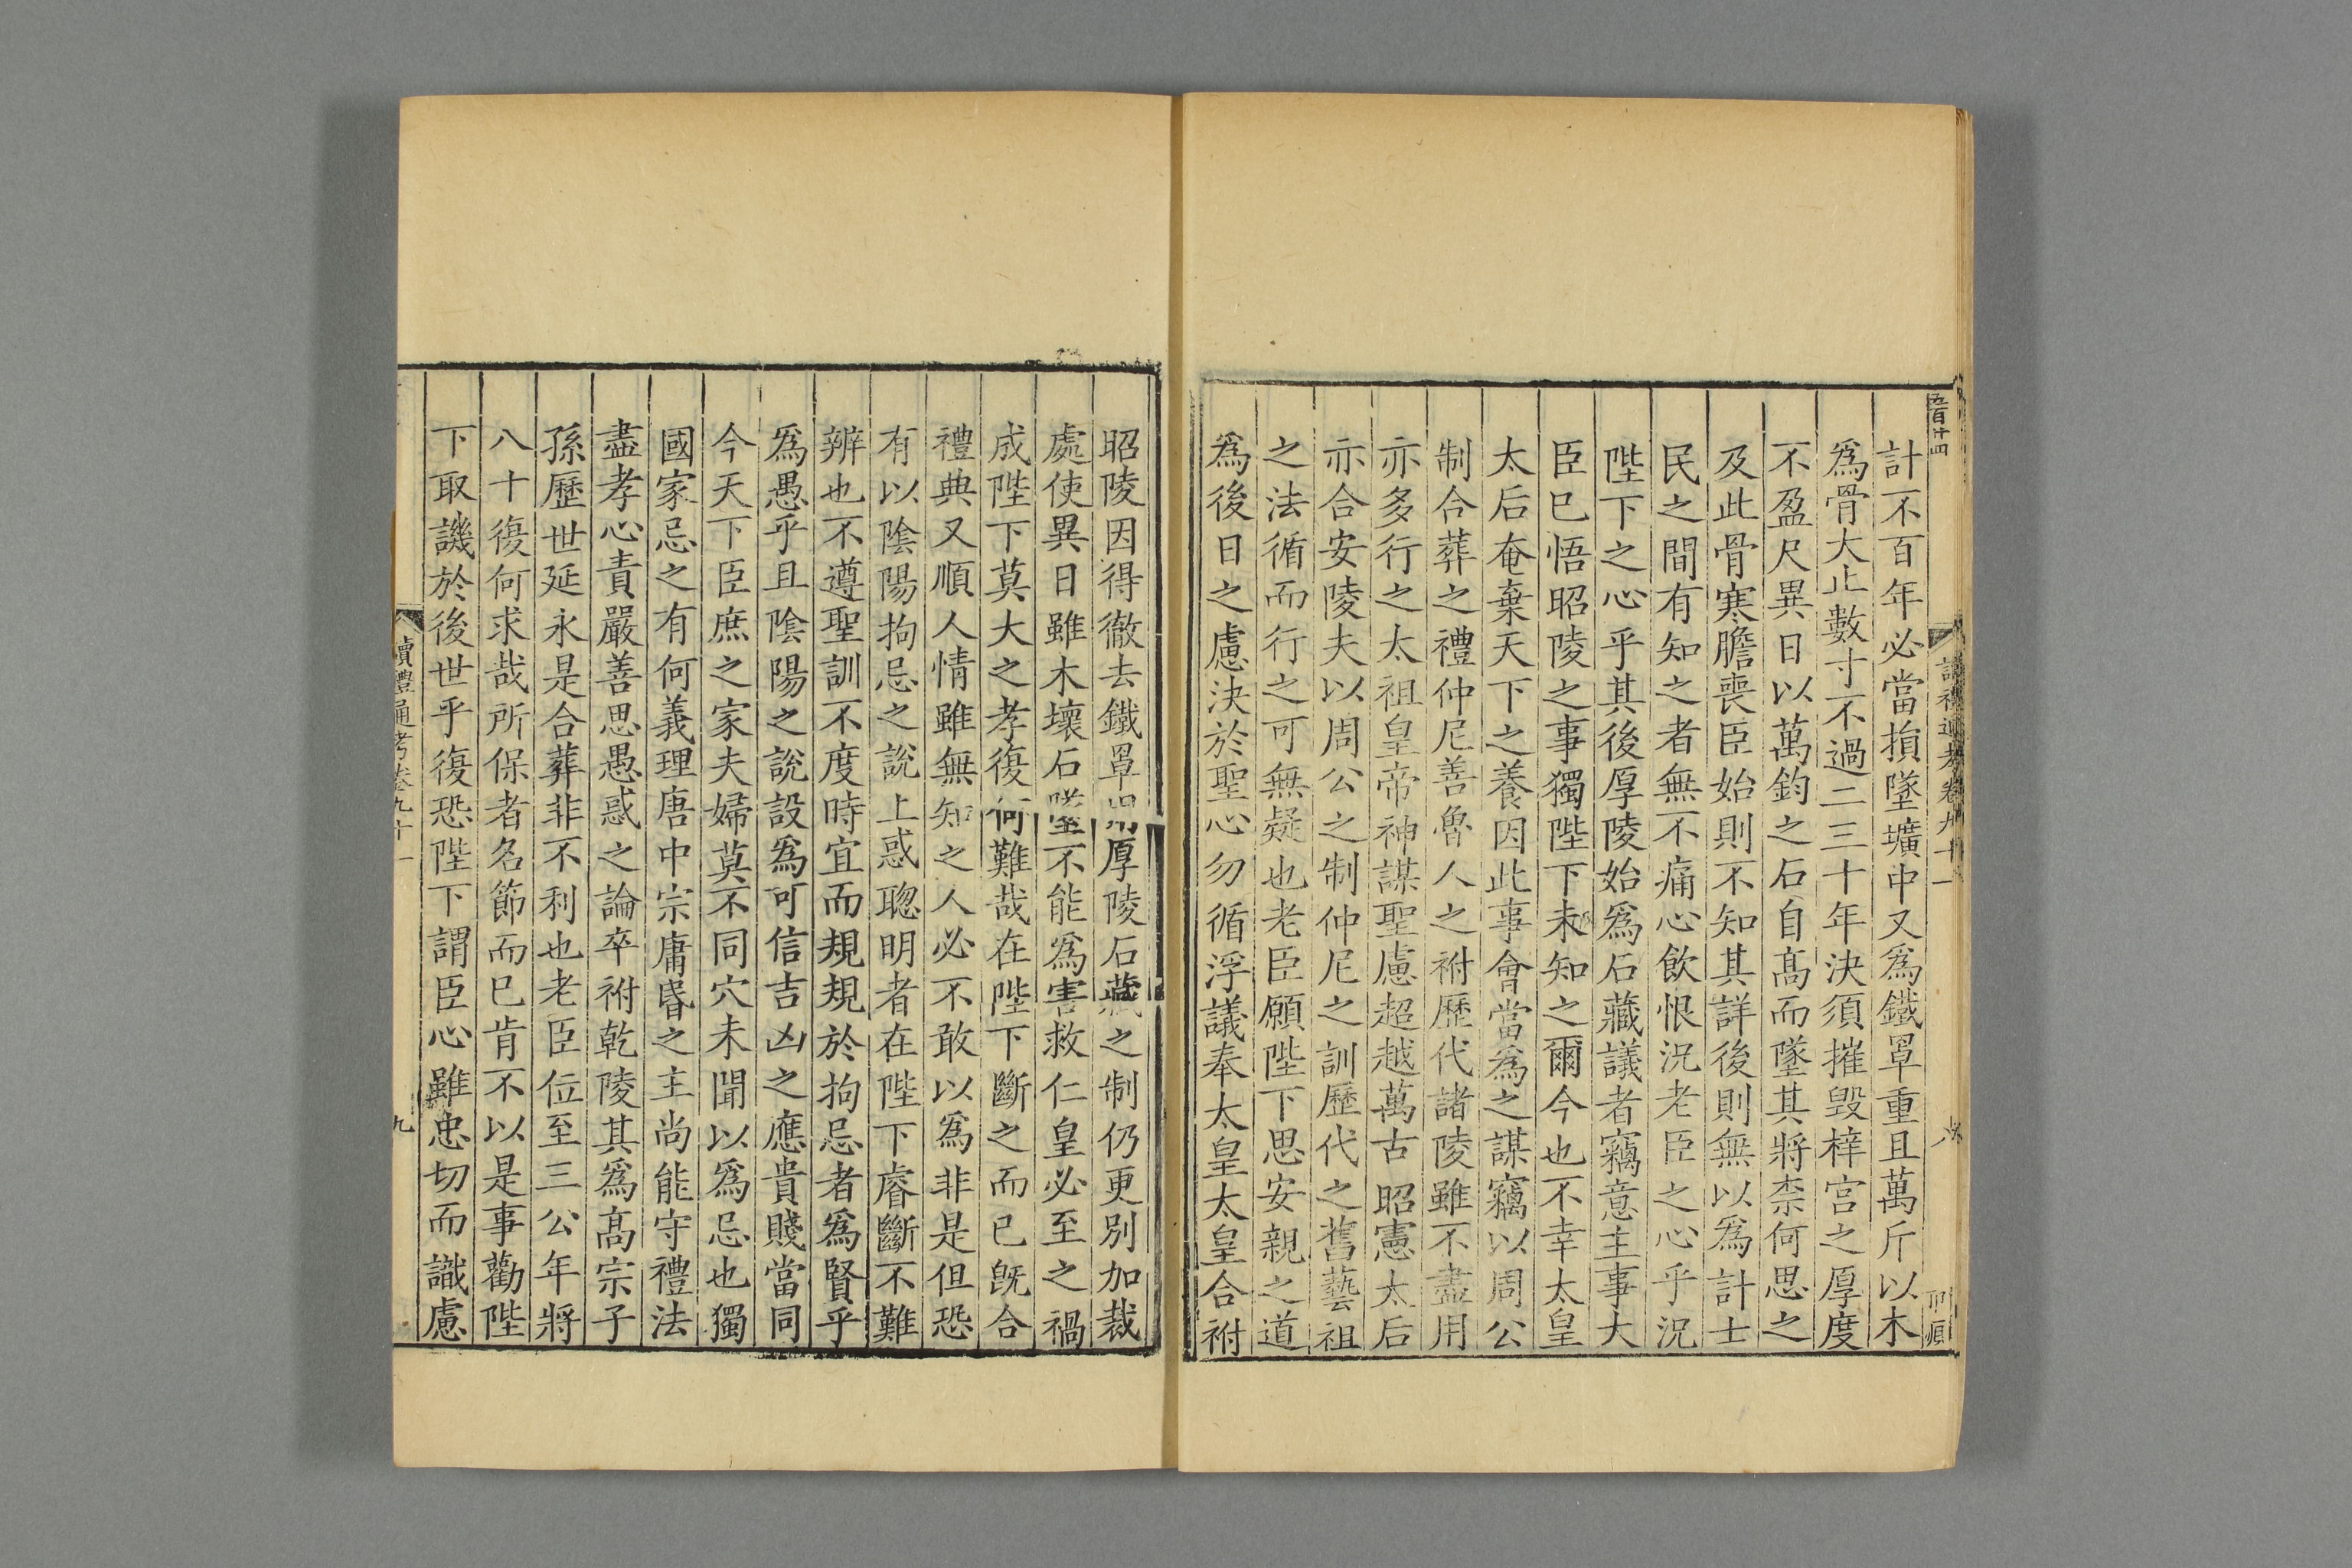 計不百年必當損墜壙中又爲鐵罩重且萬斤以木
爲骨大止數寸不過二三十年決須摧毀梓宫之厚度
不盈尺異日以萬鈞之石自髙而墜其將柰何思之
及此骨寒膽喪臣始則不知其詳後則無以爲計士
民之間有知之者無不痛心飲恨況老臣之心乎況
陛下之心乎其後厚陵始爲石藏議者竊意主事大
臣已悟昭陵之事獨陛下未知之爾今也不幸太皇
太后奄棄天下之養因此事會當爲之謀竊以周公
制合葬之禮仲尼善魯人之祔歷代諸陵雖不盡用
亦多行之太祖皇帝神謀聖慮超越萬古昭憲太后
亦合安陵夫以周公之制仲尼之訓歷代之舊藝祖
之法循而行之可無疑也老臣願陛下思安親之道
爲後日之慮決於聖心勿循浮議奉太皇太皇合祔
昭陵因得徹去鐵罩用厚陵石藏之制仍更别加裁
處使異日雖木壞石墜不能爲害救仁皇必至之禍
成陛下莫大之孝復何難哉在陛下斷之而已旣合
禮典又順人情雖無知之人必不敢以爲非是但恐
有以陰陽拘忌之說上惑聰明者在陛下睿斷不難
辨也不遵聖訓不度時宜而規規於拘忌者爲賢乎
爲愚乎且陰陽之說設爲可信吉凶之應貴賤當同
今天下臣庶之家夫婦莫不同穴未聞以爲忌也獨
國家忌之有何義理唐中宗庸昬之主尚能守禮法
盡孝心責嚴善思愚惑之論卒祔乾陵其爲髙宗子
孫歷世延永是合葬非不利也老臣位至三公年將
八十復何求哉所保者名節而已肯不以是事勸陛
下取譏於後世乎復恐陛下謂臣心雖忠切而識慮
讀禮通考卷九十一
九